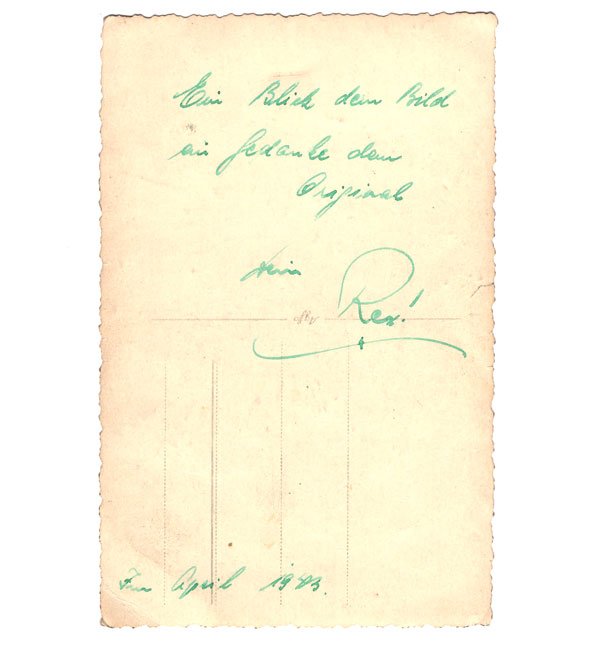 Ein Blick dem Bild
ein Gedanke dem
Original
Dein
Rex!
Im April 1943.